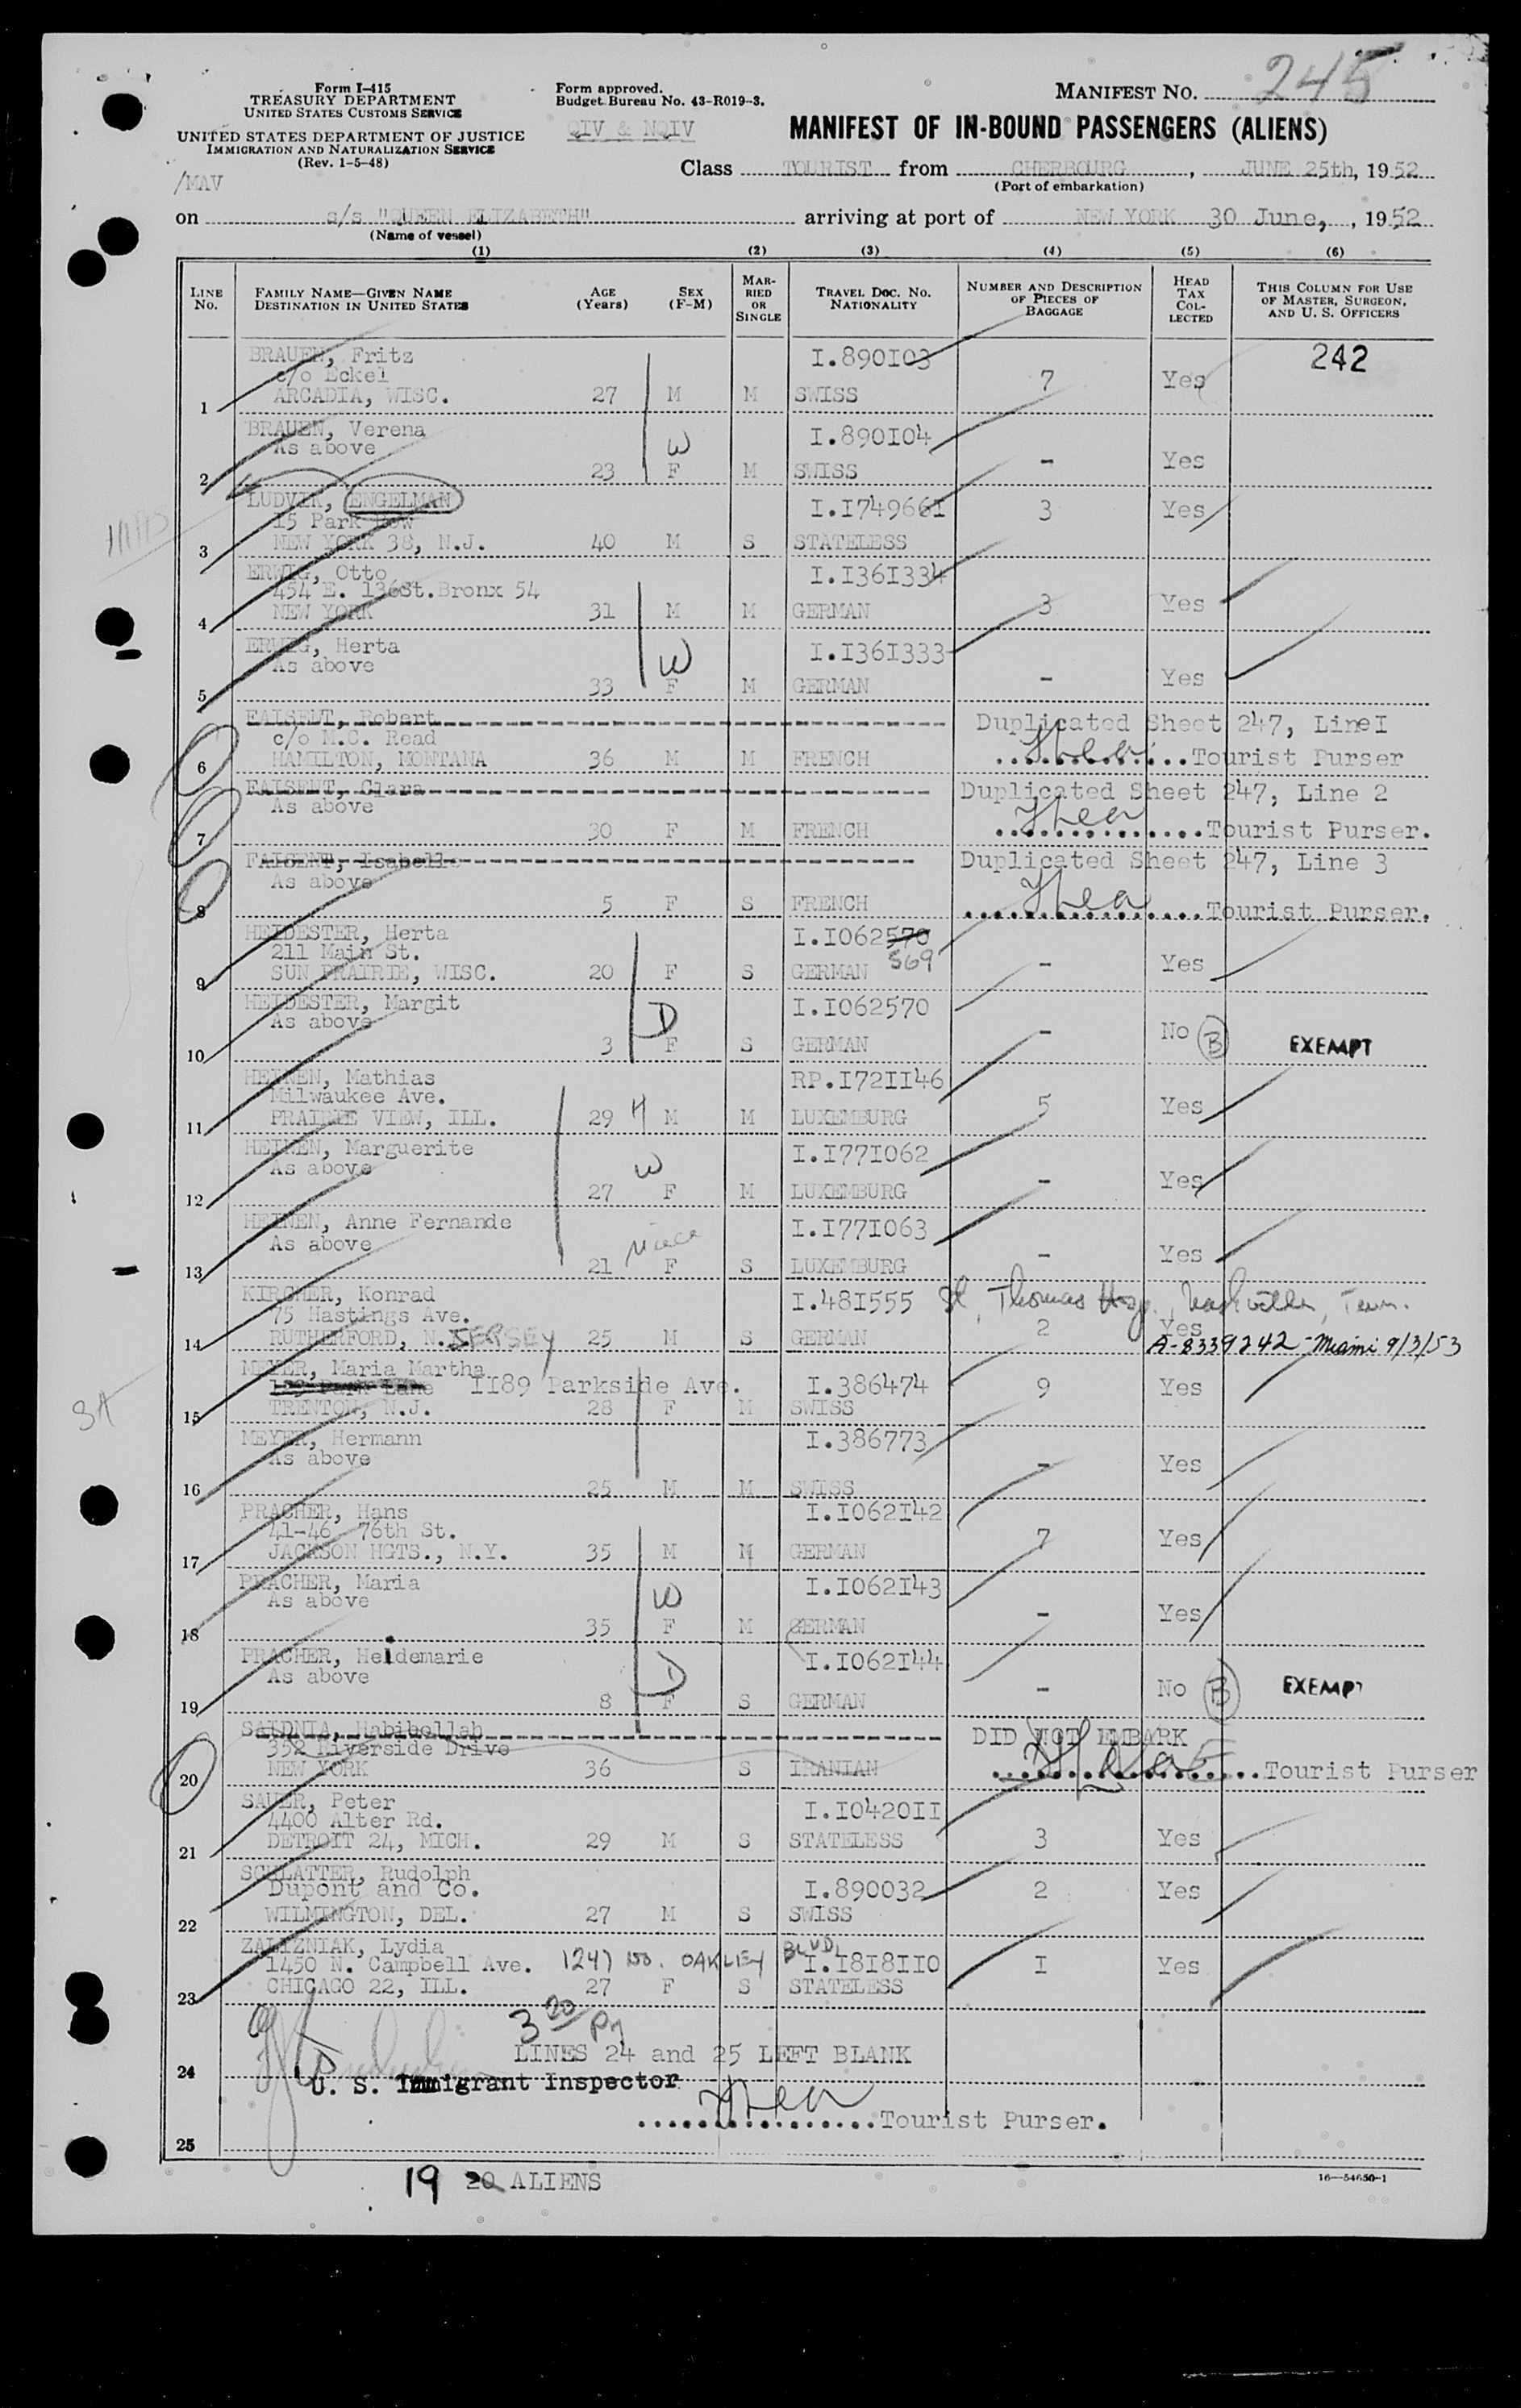 245
Form I-415
TREASURY DEPARTMENT
UNITED STATES CUSTOMS SERVICE
UNITED STATES DEPARTMENT OF JUSTICE
IMMIGRATION AND NATURALIZATION SERVICE
(Rev. 1-5-48)
Form approved.
Budget Bureau No. 43-R019-3.
QIV & NQIV
MANIFEST NO.
MANIFEST OF IN-BOUND PASSENGERS (ALIENS)
/MAV
Class TOURIST from CHERBOURG, JUNE 25th, 1952
(Port of embarkation)
on s/s "QUEEN ELIZABETH" arriving at port of NEW YORK 30 June, , 1952
(Name of vessel)
(1) (2) (3) (4) (5) (6)
LINE No.
FAMILY NAME—GIVEN NAME
DESTINATION IN UNITED STATES
AGE (Years)
SEX (F-M)
MARRIED OR SINGLE
TRAVEL DOC. NO.
NATIONALITY
NUMBER AND DESCRIPTION OF PIECES OF BAGGAGE
HEAD TAX COLLECTED
THIS COLUMN FOR USE OF MASTER, SURGEON, AND U. S. OFFICERS
BRAUEN, Fritz I.890I03 242
c/o Eckel 7 Yes
1 ARCADIA, WISC. 27 M M SWISS
BRAUEN, Verena I.890I04
As above W - Yes
2 23 F M SWISS
LUDVIK, ENGELMAN I.I74966I 3 Yes
15 Park Row
3 NEW YORK 38, N.J. 40 M S STATELESS
ERWIG, Otto I.I36I334
454 E. 136St.Bronx 54 3 Yes
4 NEW YORK 31 M M GERMAN
ERWIG, Herta I.I36I333
As above W
5 33 F M GERMAN - Yes
FAISENT, Robert Duplicated Sheet 247, Line I
c/o M.C. Read
6 HAMILTON, MONTANA 36 M M FRENCH Tourist Purser
FAISENT, Clara Duplicated Sheet 247, Line 2
As above
7 30 F M FRENCH Tourist Purser.
FAISENT, Isabelle Duplicated Sheet 247, Line 3
As above
8 5 F S FRENCH Tourist Purser.
HEIDESTER, Herta I.I062570
211 Main St. 569
9 SUN PRAIRIE, WISC. 20 F S GERMAN - Yes
HEIDESTER, Margit I.I062570
As above D - No B EXEMPT
10 3 F S GERMAN
HEINEN, Mathias RP.I72II46
Milwaukee Ave. 5 Yes
11 PRAIRIE VIEW, ILL. 29 H M M LUXEMBURG
HEINEN, Marguerite I.I77I062
As above W
12 27 F M LUXEMBURG - Yes
HEINEN, Anne Fernande I.I77I063
As above niece
13 21 F S LUXEMBURG - Yes
KIRCHER, Konrad I.48I555 St. Thomas Hosp., Nashville, Tenn.
75 Hastings Ave. 2 Yes
14 RUTHERFORD, N. JERSEY 25 M S GERMAN A-8339242 - Miami 9/3/53
MEYER, Maria Martha
Park Lane II89 Parkside Ave. I.386474 9 Yes
15 TRENTON, N.J. 28 F M SWISS
MEYER, Hermann I.386773
As above - Yes
16 25 M M SWISS
PRACHER, Hans I.I062I42
41-46, 76th St. 7 Yes
17 JACKSON HGTS., N.Y. 35 M M GERMAN
PRACHER, Maria I.I062I43
As above W - Yes
18 35 F M GERMAN
PRACHER, Heidemarie I.I062I44
As above D - No B EXEMPT
19 8 F S GERMAN
SAIDNIA, Habibollah DID NOT EMBARK
352 Riverside Drive
20 NEW YORK 36 S IRANIAN Tourist Purser
SAUER, Peter I.I0420II
4400 Alter Rd. 3 Yes
21 DETROIT 24, MICH. 29 M S STATELESS
SCHLATTER, Rudolph
Dupont and Co. I.890032 2 Yes
22 WILMINGTON, DEL. 27 M S SWISS
ZALIZNIAK, Lydia
1450 N. Campbell Ave. 1247 no. OAKLEY BLVD. I.I8I8II0 I Yes
23 CHICAGO 22, ILL. 27 F S STATELESS
3 20 Pm
LINES 24 and 25 LEFT BLANK
24
U. S. Immigrant Inspector
Tourist Purser.
25
19 20 ALIENS
16—54650-1
3A